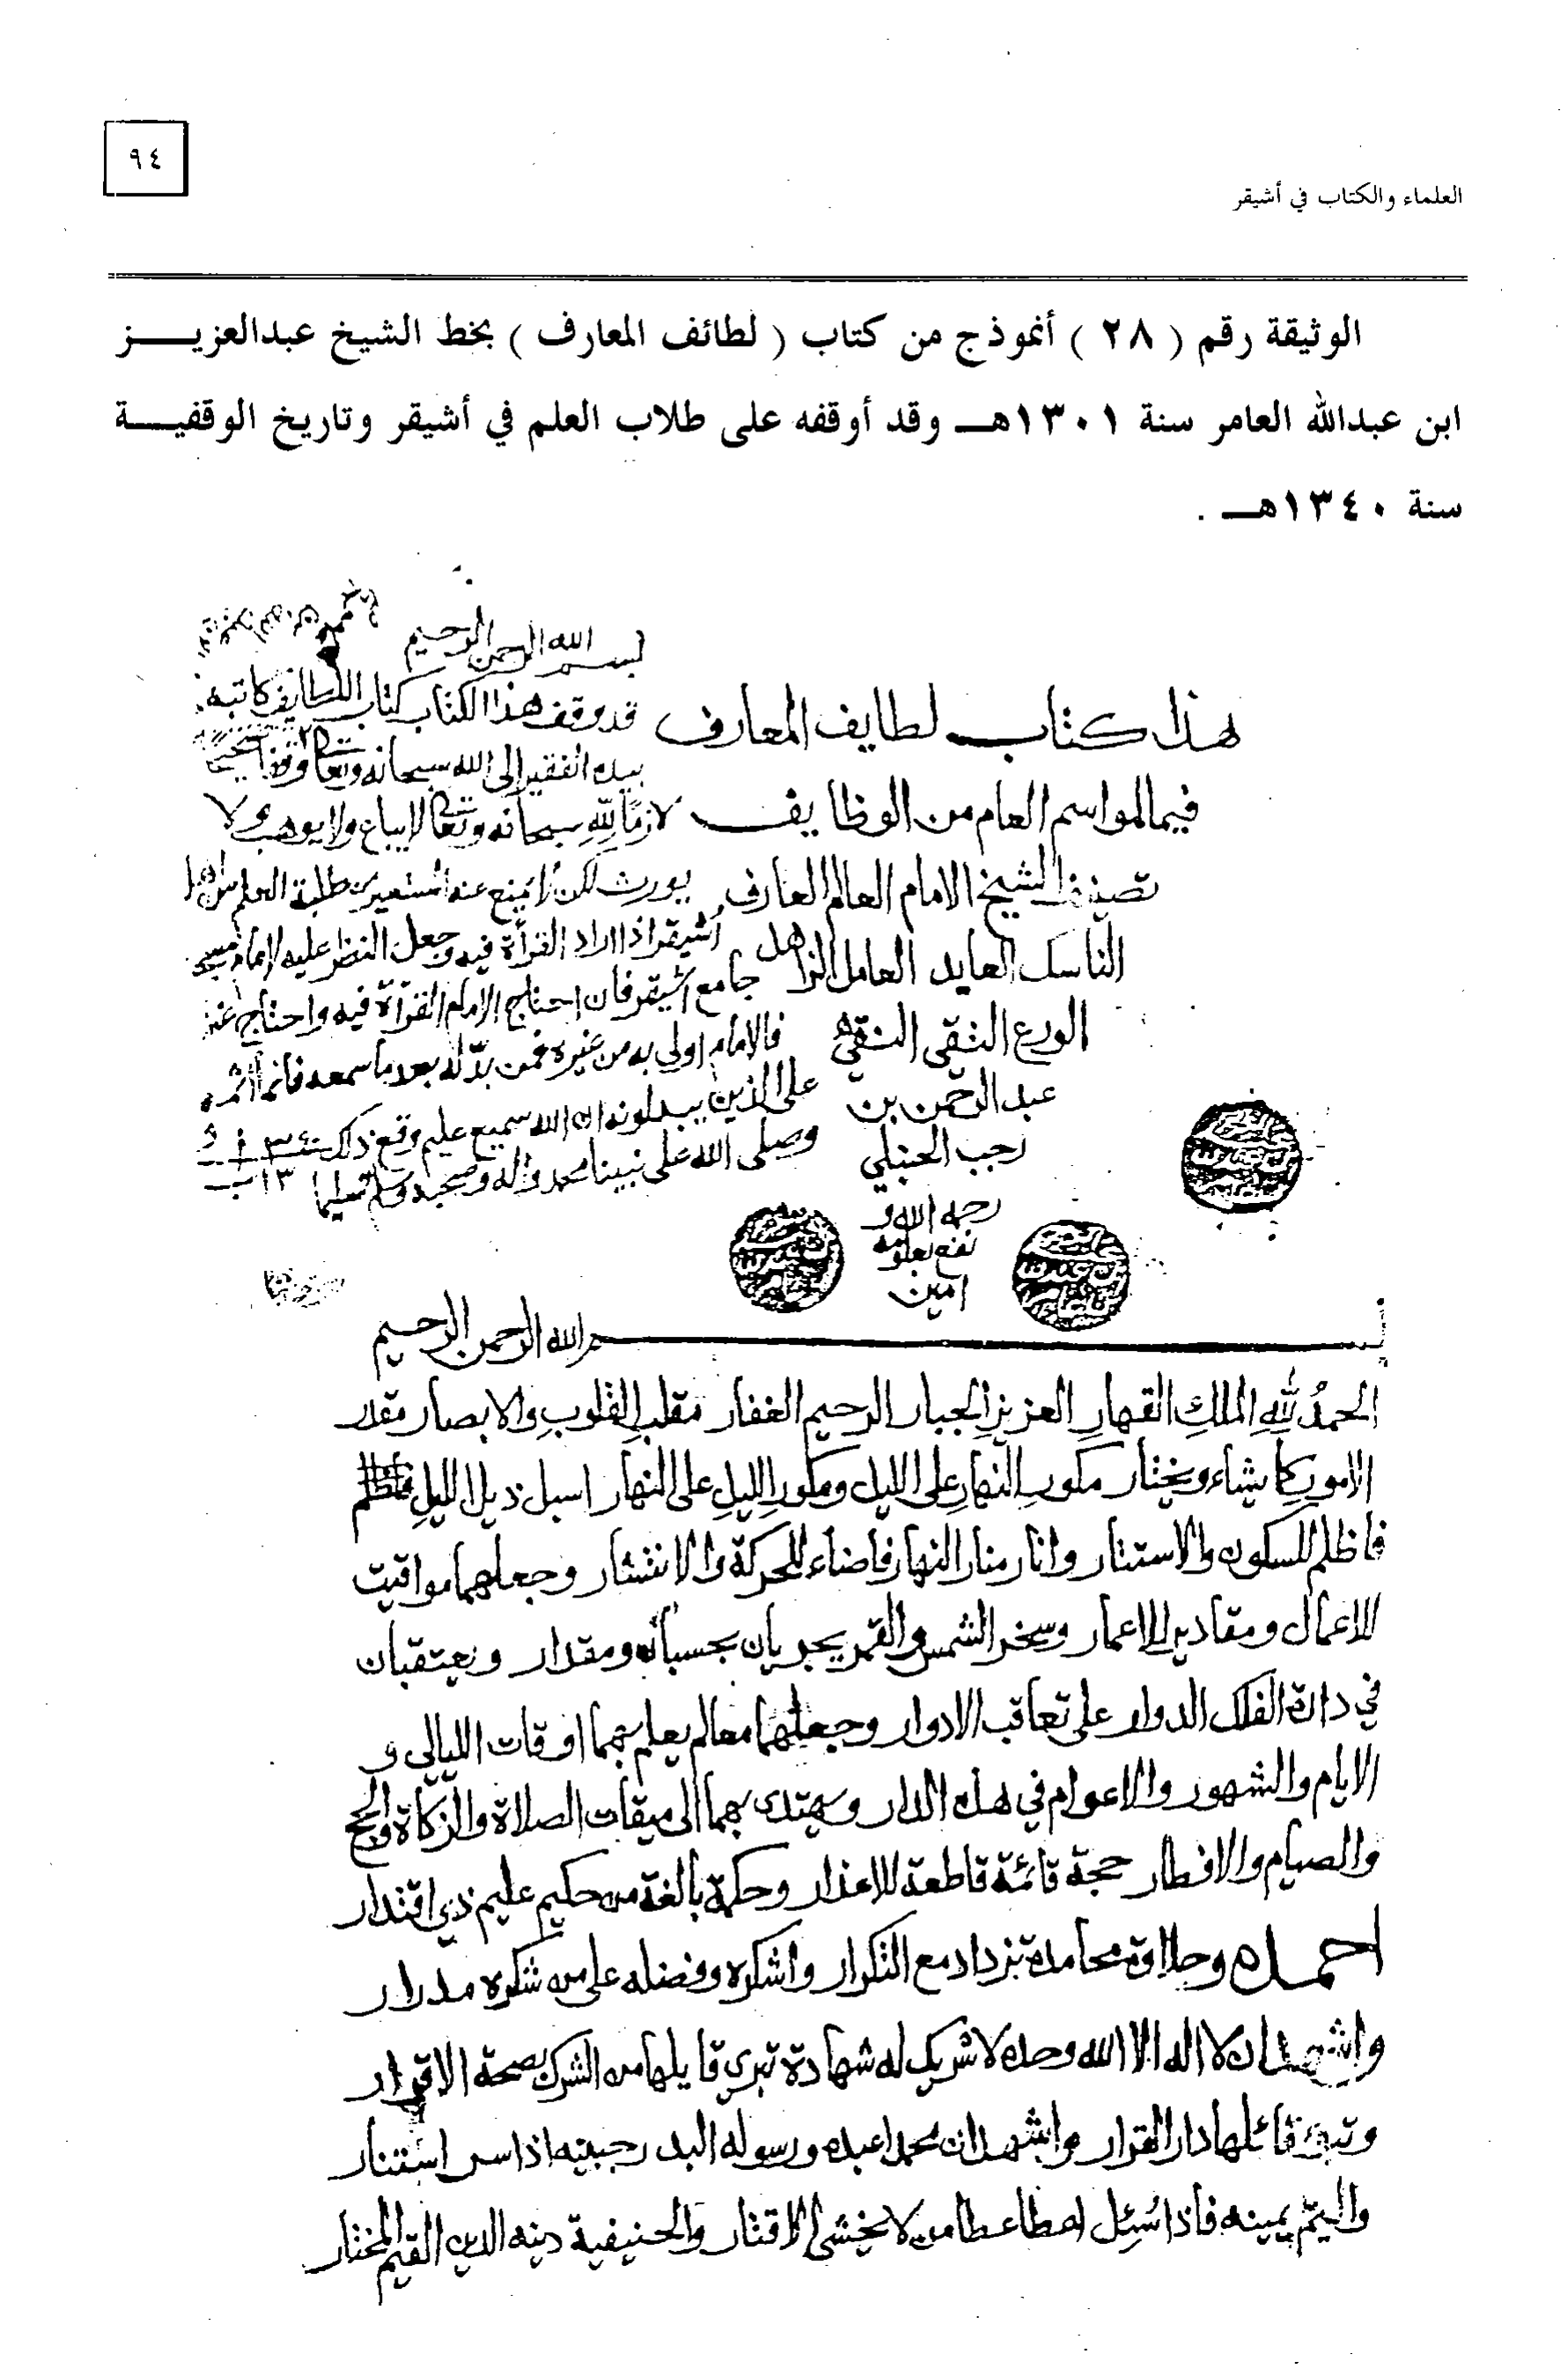 ٩٤
العلماء والكتاب في أشيقر
الوثيقة رقم ( ٢٨ ) أنموذج من كتاب ( لطائف المعارف ) بخط الشيخ عبدالعزيــــز
ابن عبدالله العامر سنة ١٣٠١هــ وقد أوقفه على طلاب العلم في أشيقر وتاريخ الوقفيــة
سنة ١٣٤٠هــ .
هذا كتاب لطايف المعارف
فيما لمواسم العام من الوظايف
تصنيف الشيخ الامام العالم العارف
الناسك العابد العامل الزاهد
الورع التقي النقي
عبد الرحمن بن
رجب الحنبلي
رحمه الله و
نفع بعلومه
امين
بسم الله الرحمن الرحيم
قد وقف هذا الكتاب كتاب اللطايف كاتبه
بيده الفقير الى الله سبحانه وتعالى وقفا صحيحا
لازمًا لِلّهِ سبحانه وتعالى لا يباع ولا يوهب ولا
يورث لكن لا يمنع عنه المستعير من طلبة العلم من اهل
أشيقر اذا اراد القرأة فيه وجعل النظر عليه لإمام مسجد
جامع أشيقر فان احتاج الامام القرأة فيه واحتاج غيره
فالامام اولى به من غيره فمن بدّله بعد ما سمعه فانما اثمه
على الذين يبدلونه ان الله سميع عليم وقع ذلك ١٣٤٠
وصلى الله على نبينا محمد واله وصحبه وسلم تسليما
بسم الله الرحمن الرحيم
الحمدُ لِلّهِ الملكِ القهارِ العزيزِ الجبار الرحيم الغفار مقلب القلوبِ والابصار مقدر
الامور كما يشاء ويختار مكور النهارِ على الليل ومكور الليلِ على النهار اسبل ذيل الليلِ
فاظلم للسكون والاستتار وانار منار النهار فاضاء للحركة والانتشار وجعلهما مواقيت
للاعمال ومقادير للاعمار وسخر الشمس والقمر يجريان بحسبان ومقدار ويعتقبان
في دارة الفلك الدوار على تعاقب الادوار وجعلهما معالم يعلم بهما اوقات الليالي و
الايام والشهور والاعوام في هذه الدار ويهتدى بهما الى ميقات الصلاة والزكاة والحج
والصيام والافطار حجة قائمة قاطعة للاعذار وحكمة بالغة من حكيم عليم ذي اقتدار
احمده وحلاوة محامده تزداد مع التكرار واشكره وفضله على من شكره مدرار
واشهد ان لا اله الا الله وحده لا شريك له شهادة تبري قايلها من الشرك بصحة الاقرار
وتبوئ قائلها دار القرار واشهد ان محمدا عبده ورسوله البدر جبينه اذا سر استنار
واليم يمينه فاذا سُئِل اعطا عطا من لا يخشى الاقتار والحنيفية دينه الدين القيم المختار